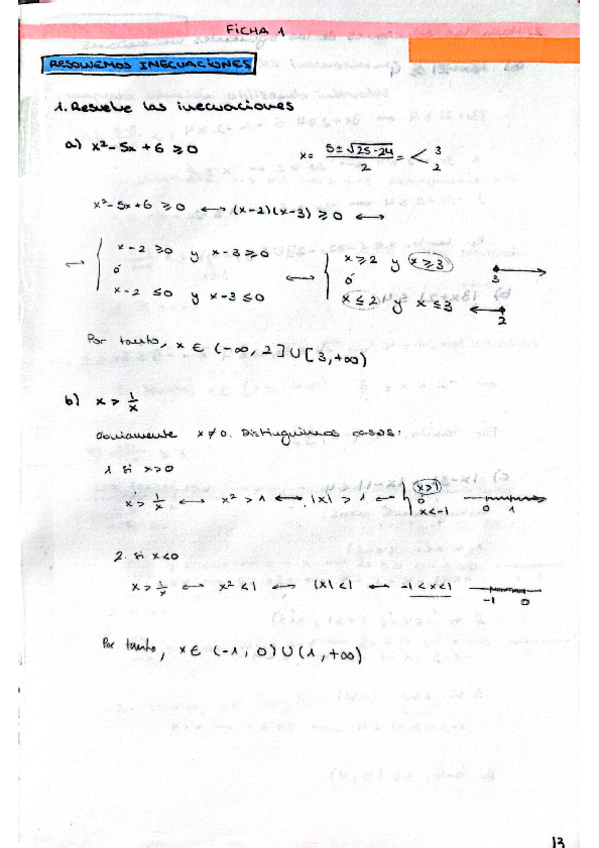 FICHA 1
RESOLVEMOS INECUACIONES
1. Resuelve las inecuaciones
a) x² - 5x + 6 ⩾ 0 x = 5 ± √25 - 24 / 2 = < 3 2
x² - 5x + 6 ⩾ 0 ⟷ (x-2)(x-3) ⩾ 0 ⟷
⟷ { x - 2 ⩾ 0 y x - 3 ⩾ 0 ó x - 2 ≤ 0 y x - 3 ≤ 0 ⟷ { x ⩾ 2 y x ⩾ 3 ó x ≤ 2 y x ≤ 3 3 2
Por tanto, x ∈ (-∞, 2] ∪ [3, +∞)
b) x > 1/x
Obviamente x ≠ 0. Distinguimos casos:
1 si x>0
x > 1/x ⟷ x² > 1 ⟷ |x| > 1 ⟷ { x>1 ó x<-1 0 1
2. si x<0
x > 1/x ⟷ x² < 1 ⟷ |x| < 1 ⟷ -1 < x < 1 -1 0
Por tanto, x ∈ (-1, 0) ∪ (1, +∞)
13